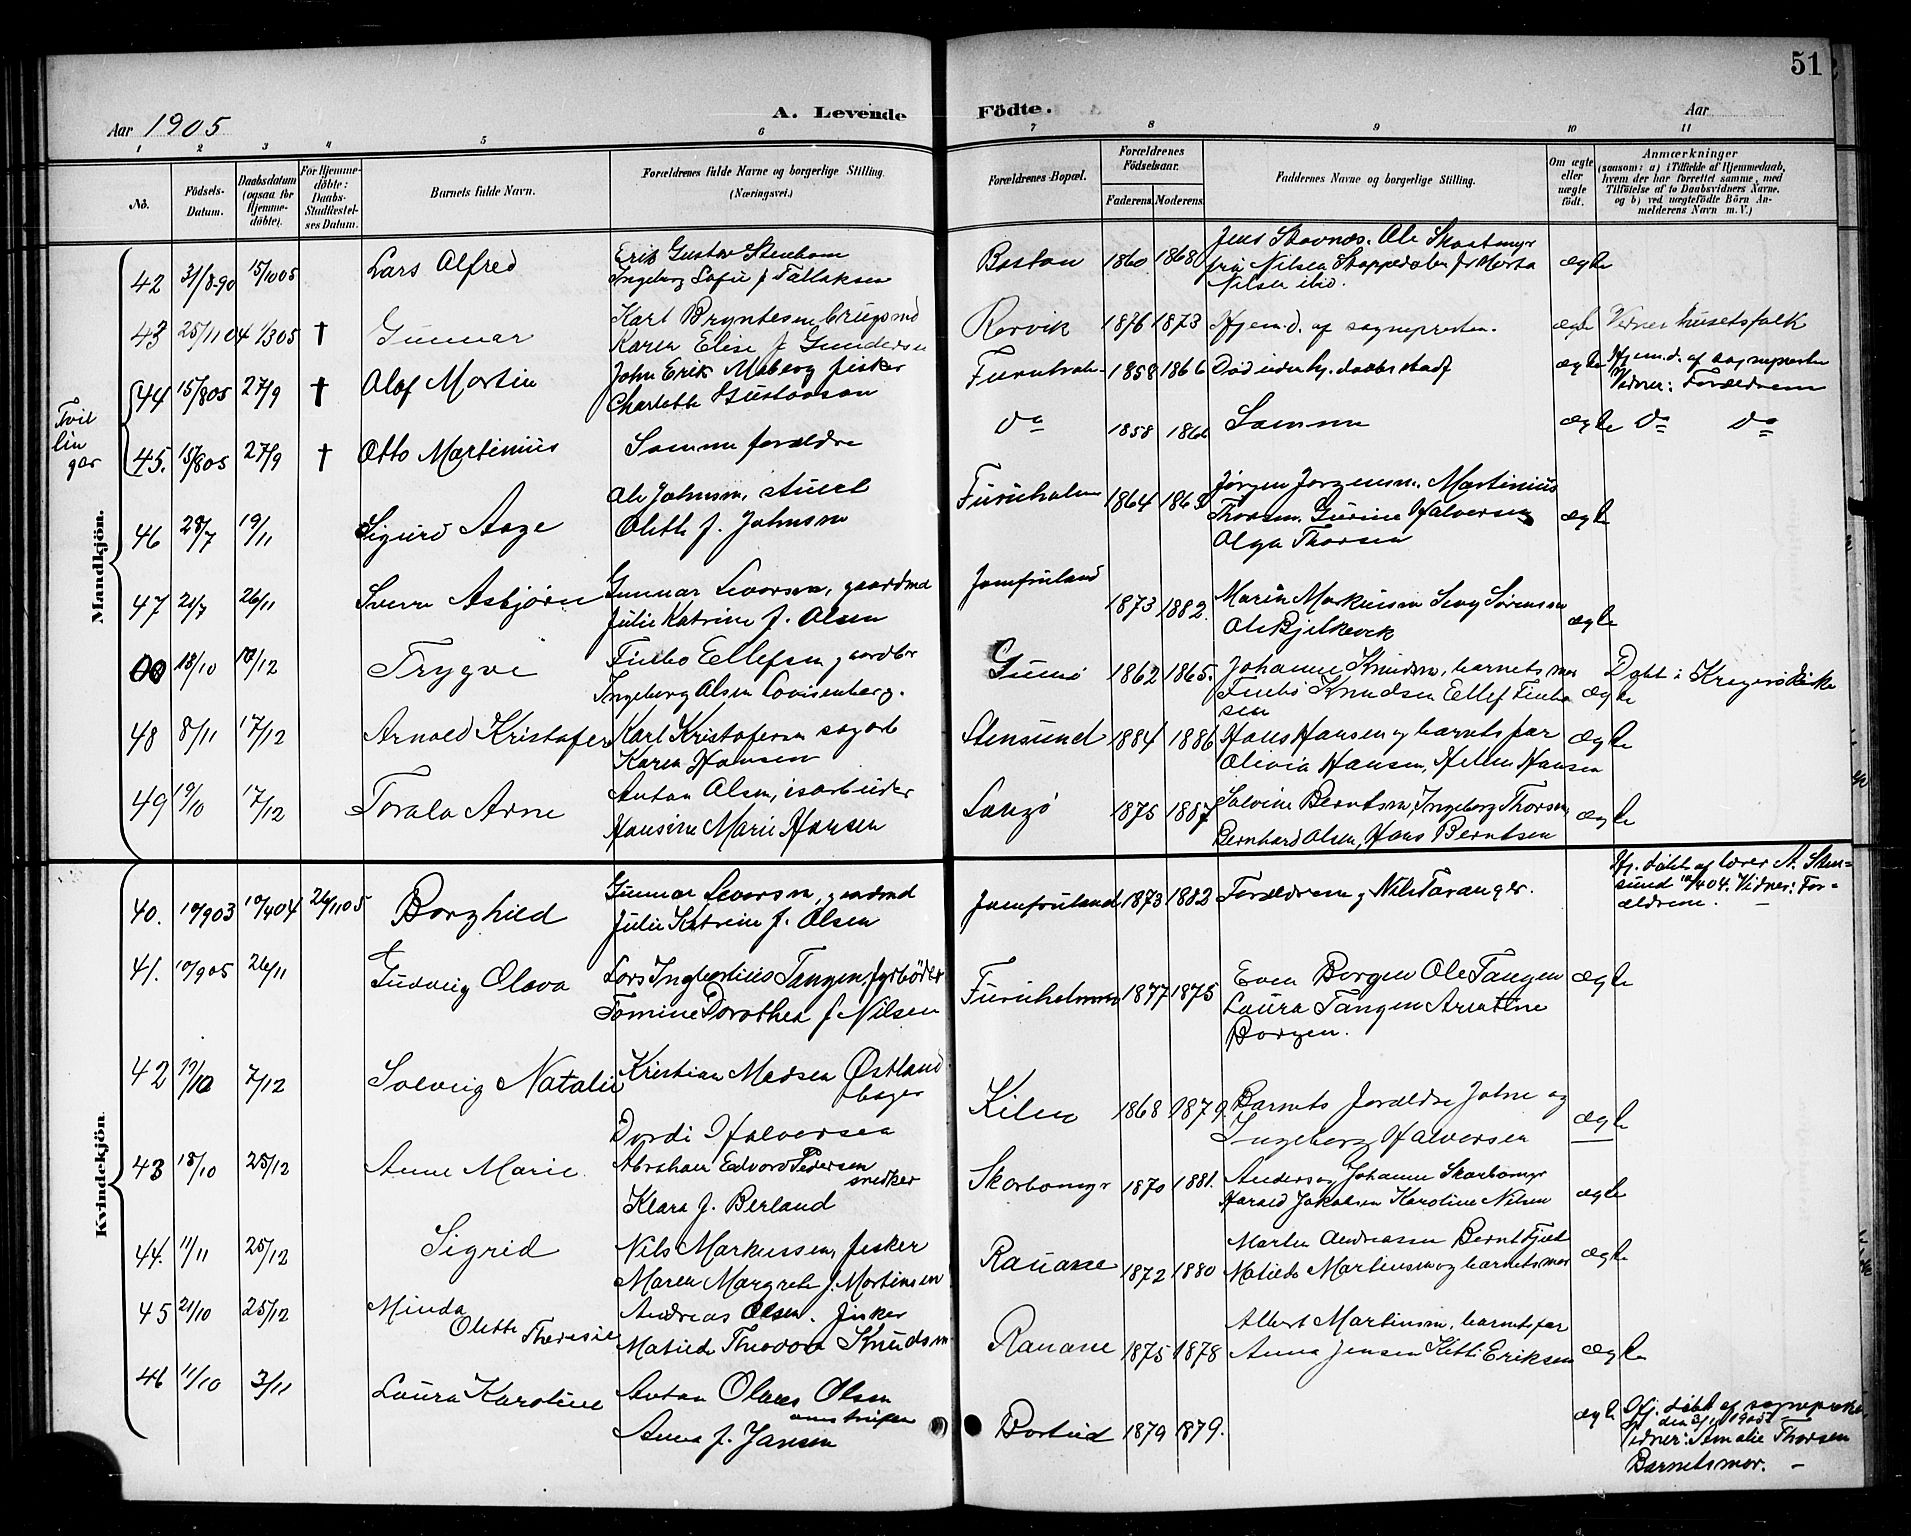 51
Aar 1905
A. Levende Födte.
Aar
1 2 3 4 5 6 7 8 9 10 11
No.
Födsels-Datum.
Daabsdatum (ogsaa for Hjemme-döbte).
For Hjemme-döbte: Daabs-Stadfæstel-ses Datum.
Barnets fulde Navn.
Forældrenes fulde Navne og borgerlige Stilling. (Næringsvei.)
Forældrenes Bopæl.
Forældrenes Födselsaar.
Faderens. Moderens.
Faddernes Navne og borgerlige Stilling.
Om ægte eller uægte födt.
Anmærkninger
(saasom: a) i Tilfælde af Hjemmedaab,
hvem der har forrettet samme, med
Tilföielse af to Daabsvidners Navne,
og b) ved uægtefödte Börn An-
melderens Navn m. V.)
Mandkjön.
42 31/8-90 15/10 05 Lars Alfred
Erik Gustav Stenhom
Ingeborg Sofie f. Tallaksen
Boston 1860 1868
Jens Stavnæs. Ole
fru Nilsen
Nilsen ibid.
ægte
43 25/11 04 1/3 05 † Gunnar
Karl Bryntesen
Karen Elise f. Gundersen
Rørvik 1876 1873 Hjem.d. af sognepresten. ægte Vidner husetsfolk
Tvillingar
44 15/8 05 27/9 † Olaf Martin
John Erik Moberg fisker
Charlotte Gustavson
1858 1866 Død inden hj. daabs stadf ægte
Hjem.d. af sognepresten
Vidner: Forældrene
45. 15/8 05 27/9 † Otto Martinius Samme forældre do 1858 1866 Samme ægte do do
46 28/7 19/11 Sigurd Aage
Ole Johnsen, stuert
Olette f. Johnsen
Furuholmen 1864 1863
Jørgen Jørgensen. Martinius
Thorsen. Gurine Halversen
Olga Thorsen
ægte
47 21/7 26/11 Sverre Asbjørn
Gunnar Levorsen, gaardmd
Julie Katrine f. Olsen
Jomfruland 1873 1882.
Maren Markussen Sørensen
Ole Bjelkevik
ægte
18/10 10/12 Trygve
Finbo Ellefsen gaardbr
Ingeborg Olsen Lovisenberg.
Gumø 1862 1865.
Johanne Knudsen, barnets mor
Finbo Knudsen Ellef Finbo
sen
ægte Døbt i Kragerø kirke
48 8/11 17/12 Arnold Kristofer
Karl Kristofersen sagarb
Karen Hansen
Stensund 1884 1886
Hans Hansen og barnets far
Olivia Hansen, Helene Hansen
ægte
49 19/10 17/12 Torolo Arne
Anton Olsen, isarbeider
Hansine Marie Hansen
Langø 1875 1887
Salvine Berntsen, Ingeborg Thorsen
Bernhard Olsen, Hans Berntsen
ægte
Kvindekjön.
40. 19/9 03 10/4 04 26/11 05 Borghild
Gunnar Levorsen, gaardmd
Julie Katrine f. Olsen
Jomfruland 1873 1882 Forældrene og Nils Taranger.
Hj. døbt af lærer A. Sten-
sund 10/4 04. Vidner: For-
ældrene.
41. 10/9 05 26/11 Gudveig Olava
Lars Ingbertius Tangen, fyrbøder
Tomine Dorothea f. Nilsen
Furuholmen 1877 1875
Even Borgen Ole Tangen
Laura Tangen
Borgen.
ægte
42 7/12 Solveig Natalie
Kristian Madsen Østland
bager
Dordi Halversen
Kilen 1868 1879.
Barnets forældre Johne og
Ingeborg Halversen
ægte
43 18/10 25/12 Anne Marie
Abraham Edvard Pedersen
snedker
Klara f. Berland
Skarbomyr 1870 1881.
Anders og Johanne Skarbomyr
Harald Jakobsen Karoline Nilsen
ægte
44. 11/11 25/12 Sigrid
Nils Markussen, fisker
Maren Margrete f. Martinsen
Rauane 1872 1880
Martin Andreassen Bernt
Matilde Martinsen og barnets mor
ægte
45 21/10 25/12 Minda
Olette Theresie
Andreas Olsen. fisker
Matilde Theodora Knudsen
Rauane 1875 1878
Albert Martinsen, barnets far
Anna Jensen Kitti Eriksen
ægte
46 11/10 3/11 Laura Karoline
Anton Olaves Olsen
Anna f. Jansen
1879 1879. ægte
Hj. døbt af sogneprest
den 3/11 1905
Vidner: Amalie Thorsen
Barnets mor.